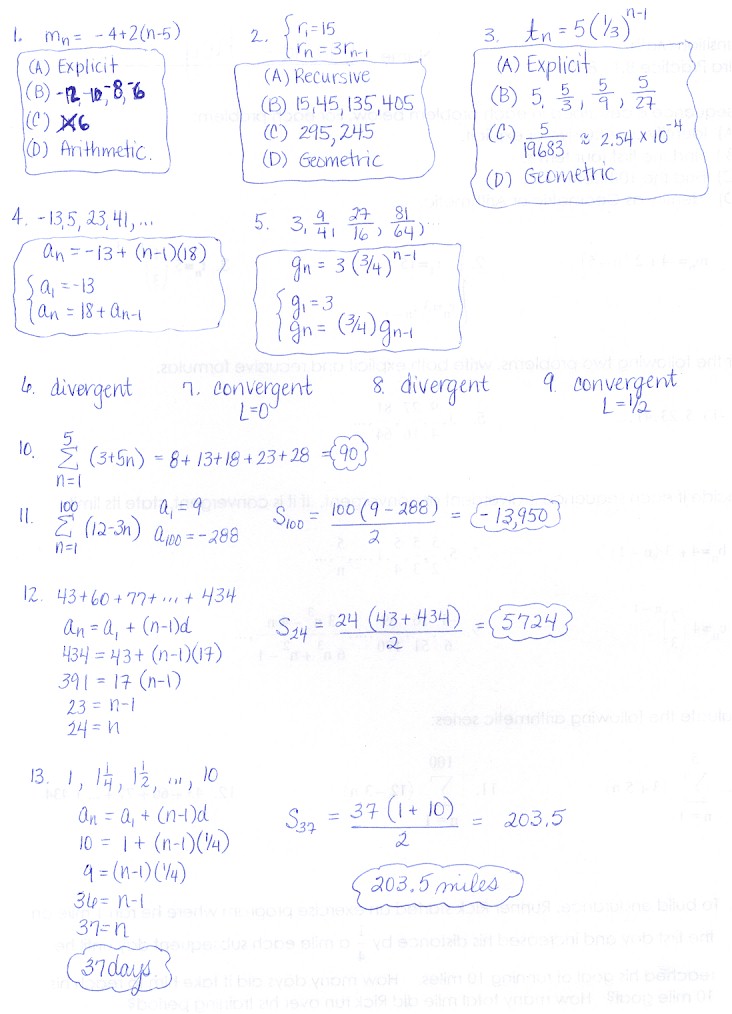 1. mₙ = -4+2(n-5)
(A) Explicit
(B) -12, -10, -8, -6
(C) 6
(D) Arithmetic.
2. { r₁=15
rₙ = 3rₙ₋₁
(A) Recursive
(B) 15, 45, 135, 405
(C) 295,245
(D) Geometric
3. tₙ = 5(1/3)ⁿ⁻¹
(A) Explicit
(B) 5, 5/3, 5/9, 5/27
(C) 5/19683 ≈ 2.54 x 10⁻⁴
(D) Geometric
4. -13, 5, 23, 41, ...
aₙ = -13 + (n-1)(18)
{ a₁ = -13
aₙ = 18 + aₙ₋₁
5. 3, 9/4, 27/16, 81/64, ...
gₙ = 3(3/4)ⁿ⁻¹
{ g₁ = 3
gₙ = (3/4)gₙ₋₁
6. divergent
7. convergent
L=0
8. divergent
9. convergent
L=1/2
10. 5 Σ n=1 (3+5n) = 8+13+18+23+28 = 90
11. 100 Σ n=1 (12-3n) a₁ = 9
a₁₀₀ = -288
S₁₀₀ = 100(9-288)/2 = -13,950
12. 43+60+77+...+434
aₙ = a₁ + (n-1)d
434 = 43 + (n-1)(17)
391 = 17(n-1)
23 = n-1
24 = n
S₂₄ = 24(43+434)/2 = 5724
13. 1, 1 1/4, 1 1/2, ..., 10
aₙ = a₁ + (n-1)d
10 = 1 + (n-1)(1/4)
9 = (n-1)(1/4)
36 = n-1
37 = n
37 days
S₃₇ = 37(1+10)/2 = 203.5
203.5 miles